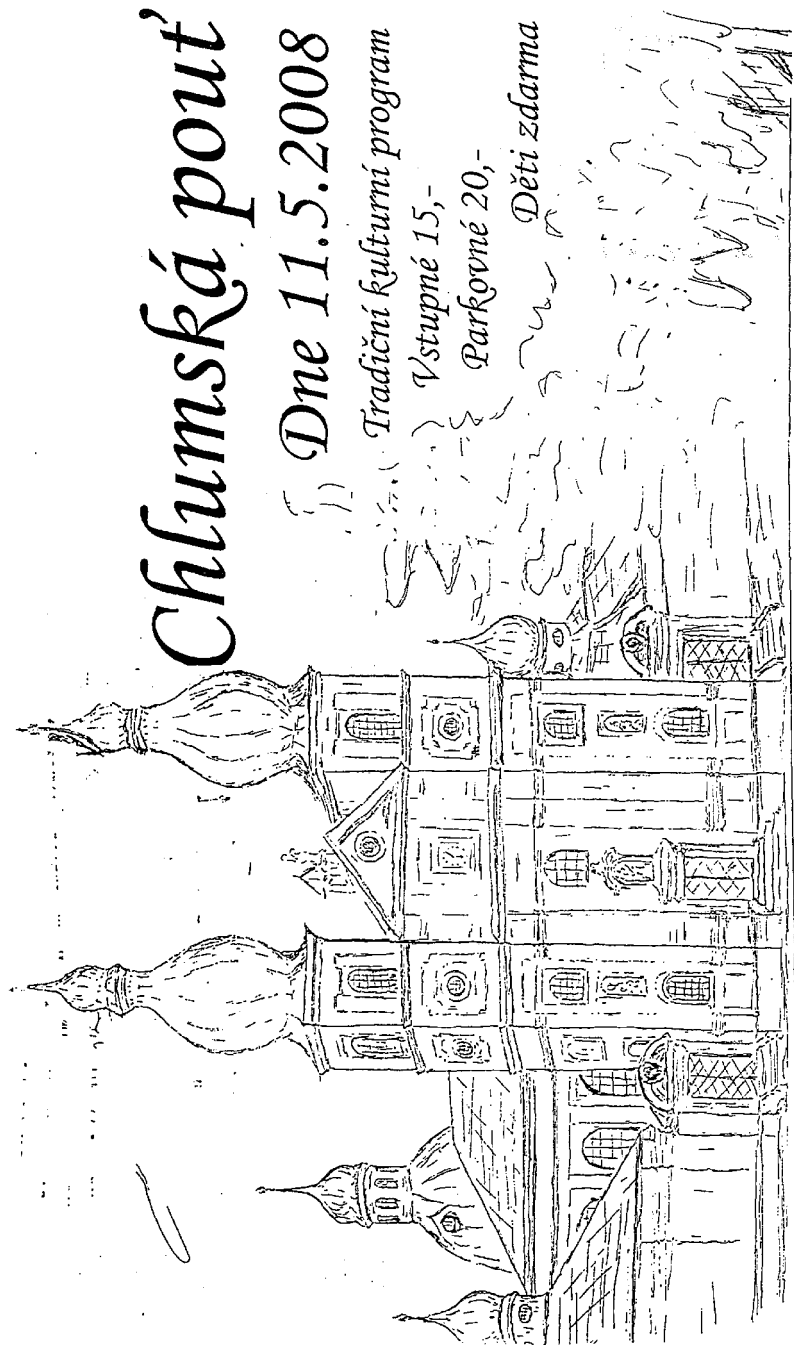 Chlumská pouť
Dne 11.5.2008
Tradiční kulturní program
Vstupné 15,-
Parkovné 20,-
Děti zdarma